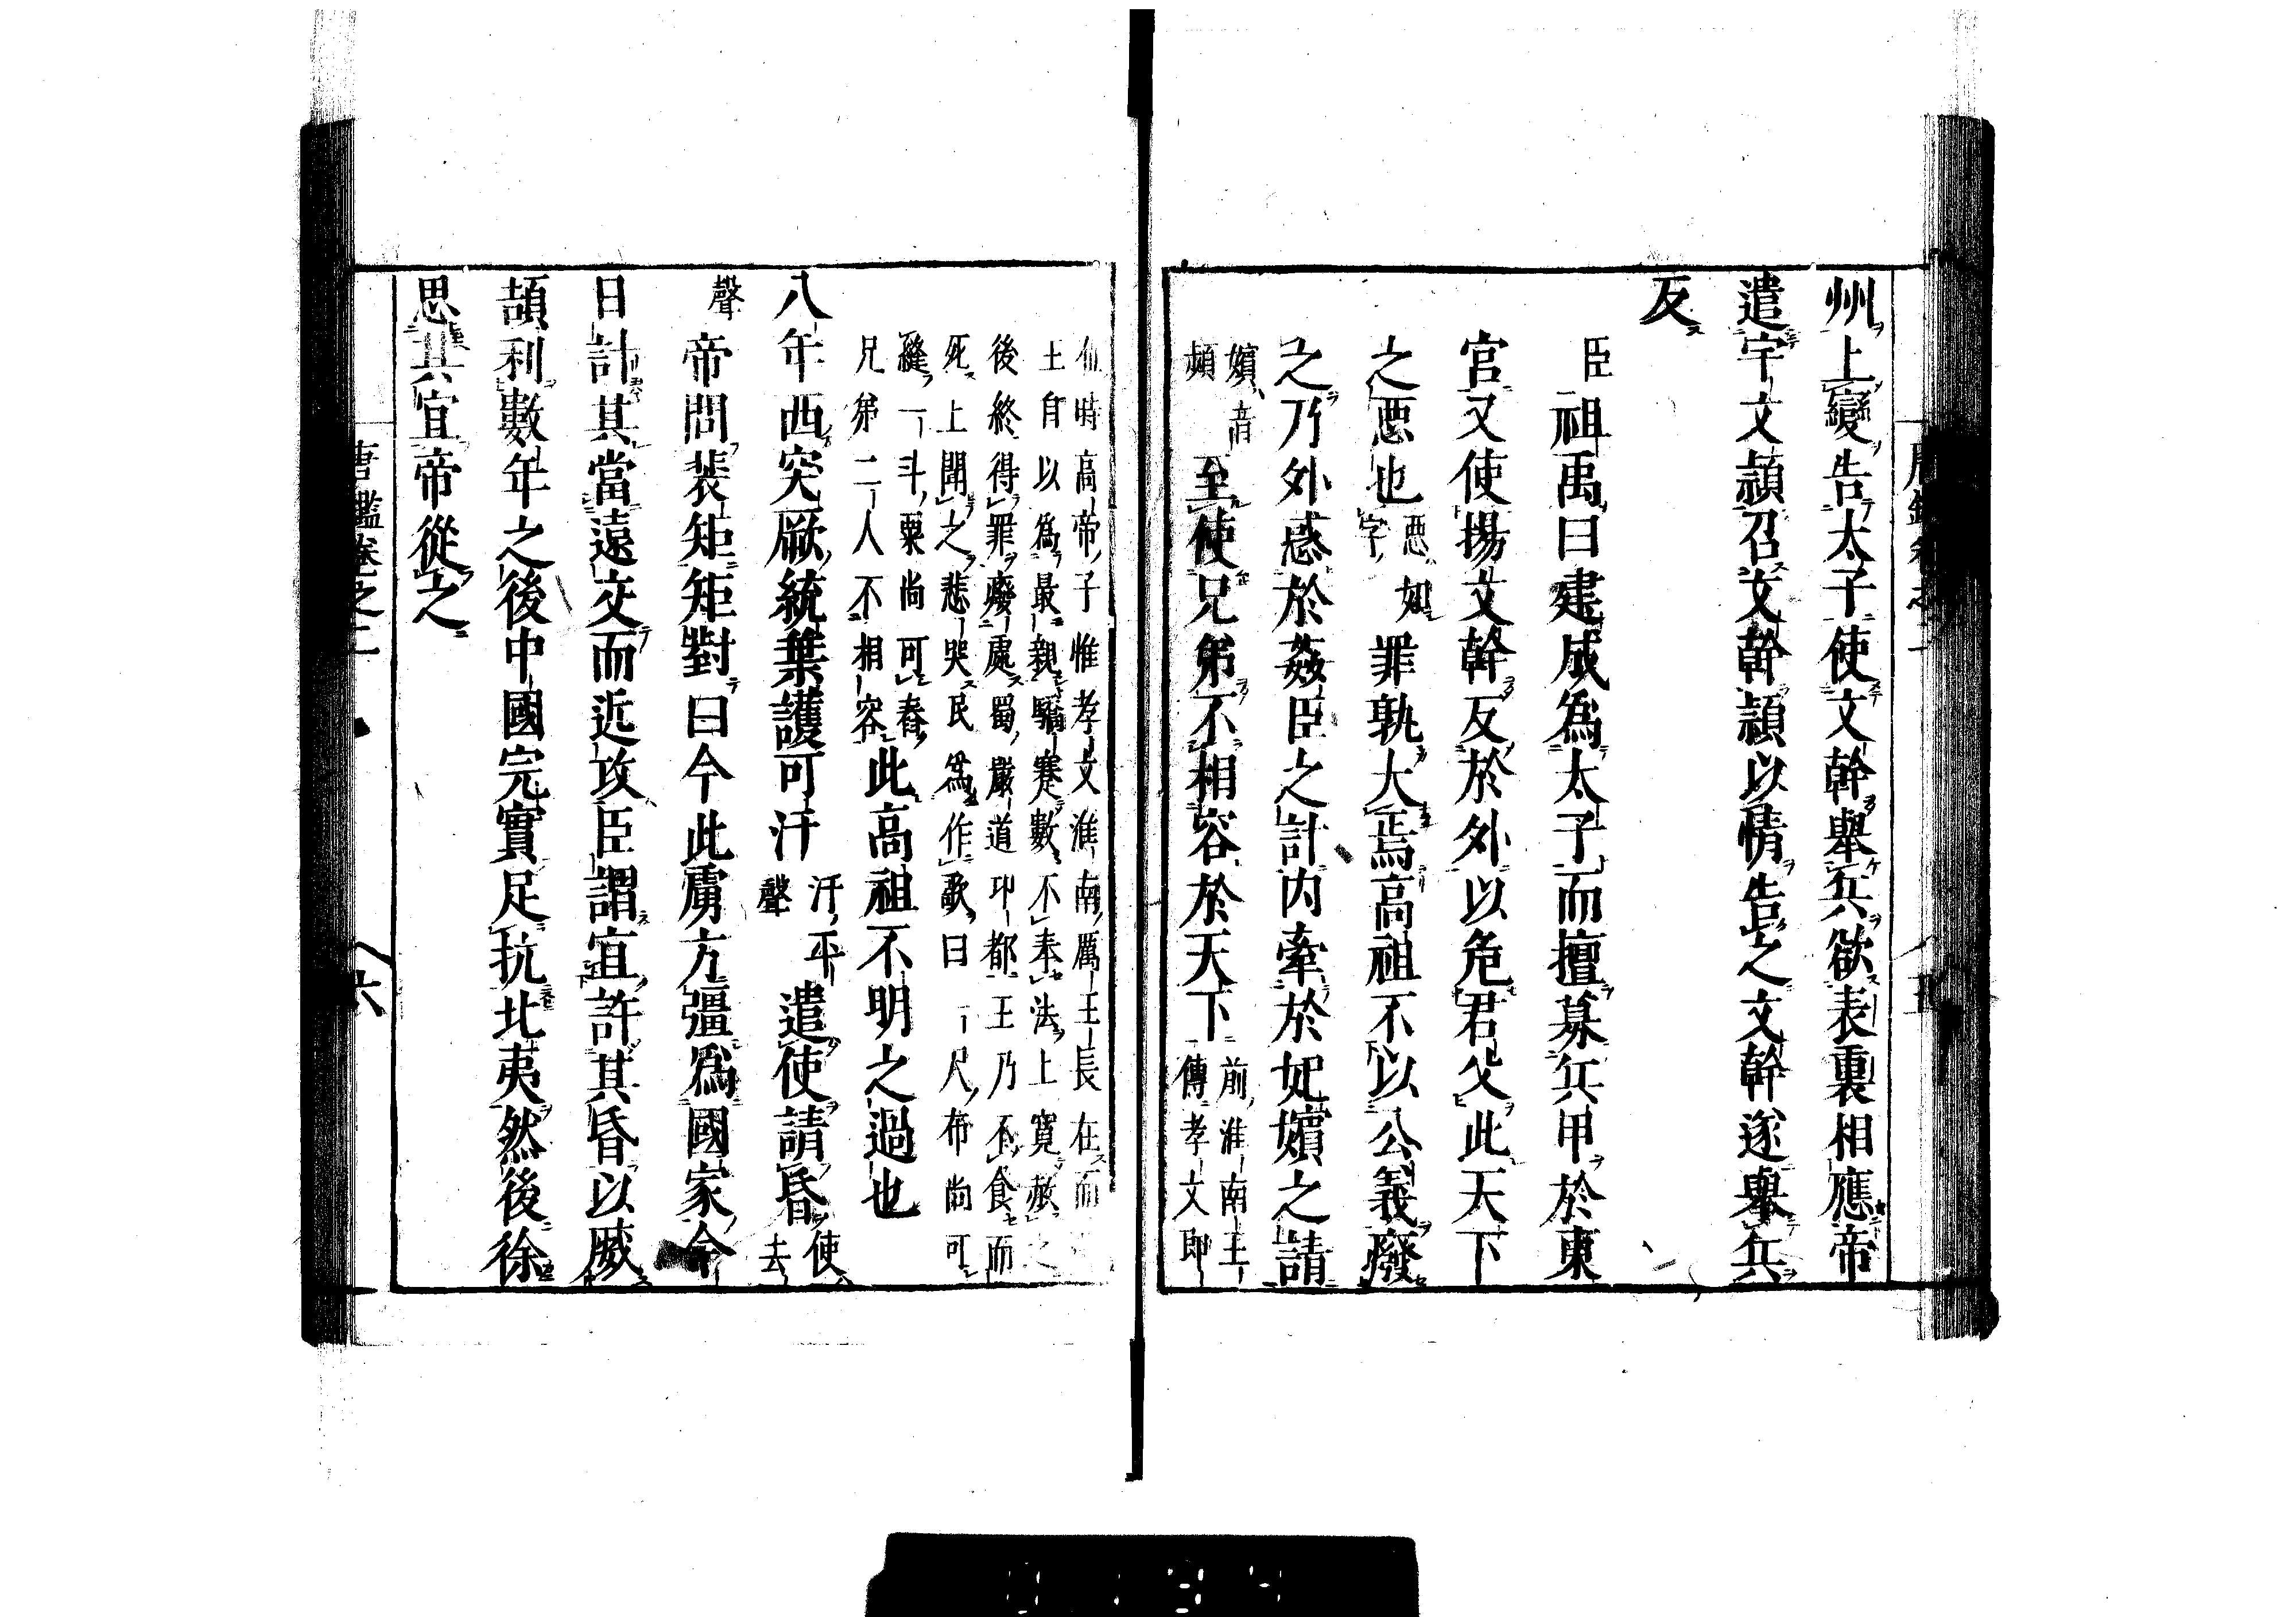 州上變告太子使文幹舉兵欲表裏相應帝
遣宇文穎召文幹穎以情告之文幹遂舉兵
反
臣祖禹曰建成爲太子而擅募兵甲於東
宮又使楊文幹反於外以危君父此天下
之惡也惡如字罪孰大焉高祖不以公義廢
之乃外惑於姦臣之計内牽於妃嬪之請
嬪音頻至使兄弟不相容於天下前淮南王傳孝文即
位時高帝子惟孝文淮南厲王長在而
王自以爲最親驕蹇數不奉法上寬赦之
後終得罪廢處蜀嚴道卭都王乃不食而
死上聞之悲哭民爲作歌曰一尺布尚可
縫一斗粟尚可舂
兄弟二人不相容此高祖不明之過也
八年西突厥統葉護可汗汗平聲遣使請昏使去
聲帝問裴矩矩對曰今此虜方彊爲國家今
日計其當遠交而近攻臣謂宜許其昏以威
頡利數年之後中國完實足抗北夷然後徐
思其宜帝從之
唐鑑卷之二
六